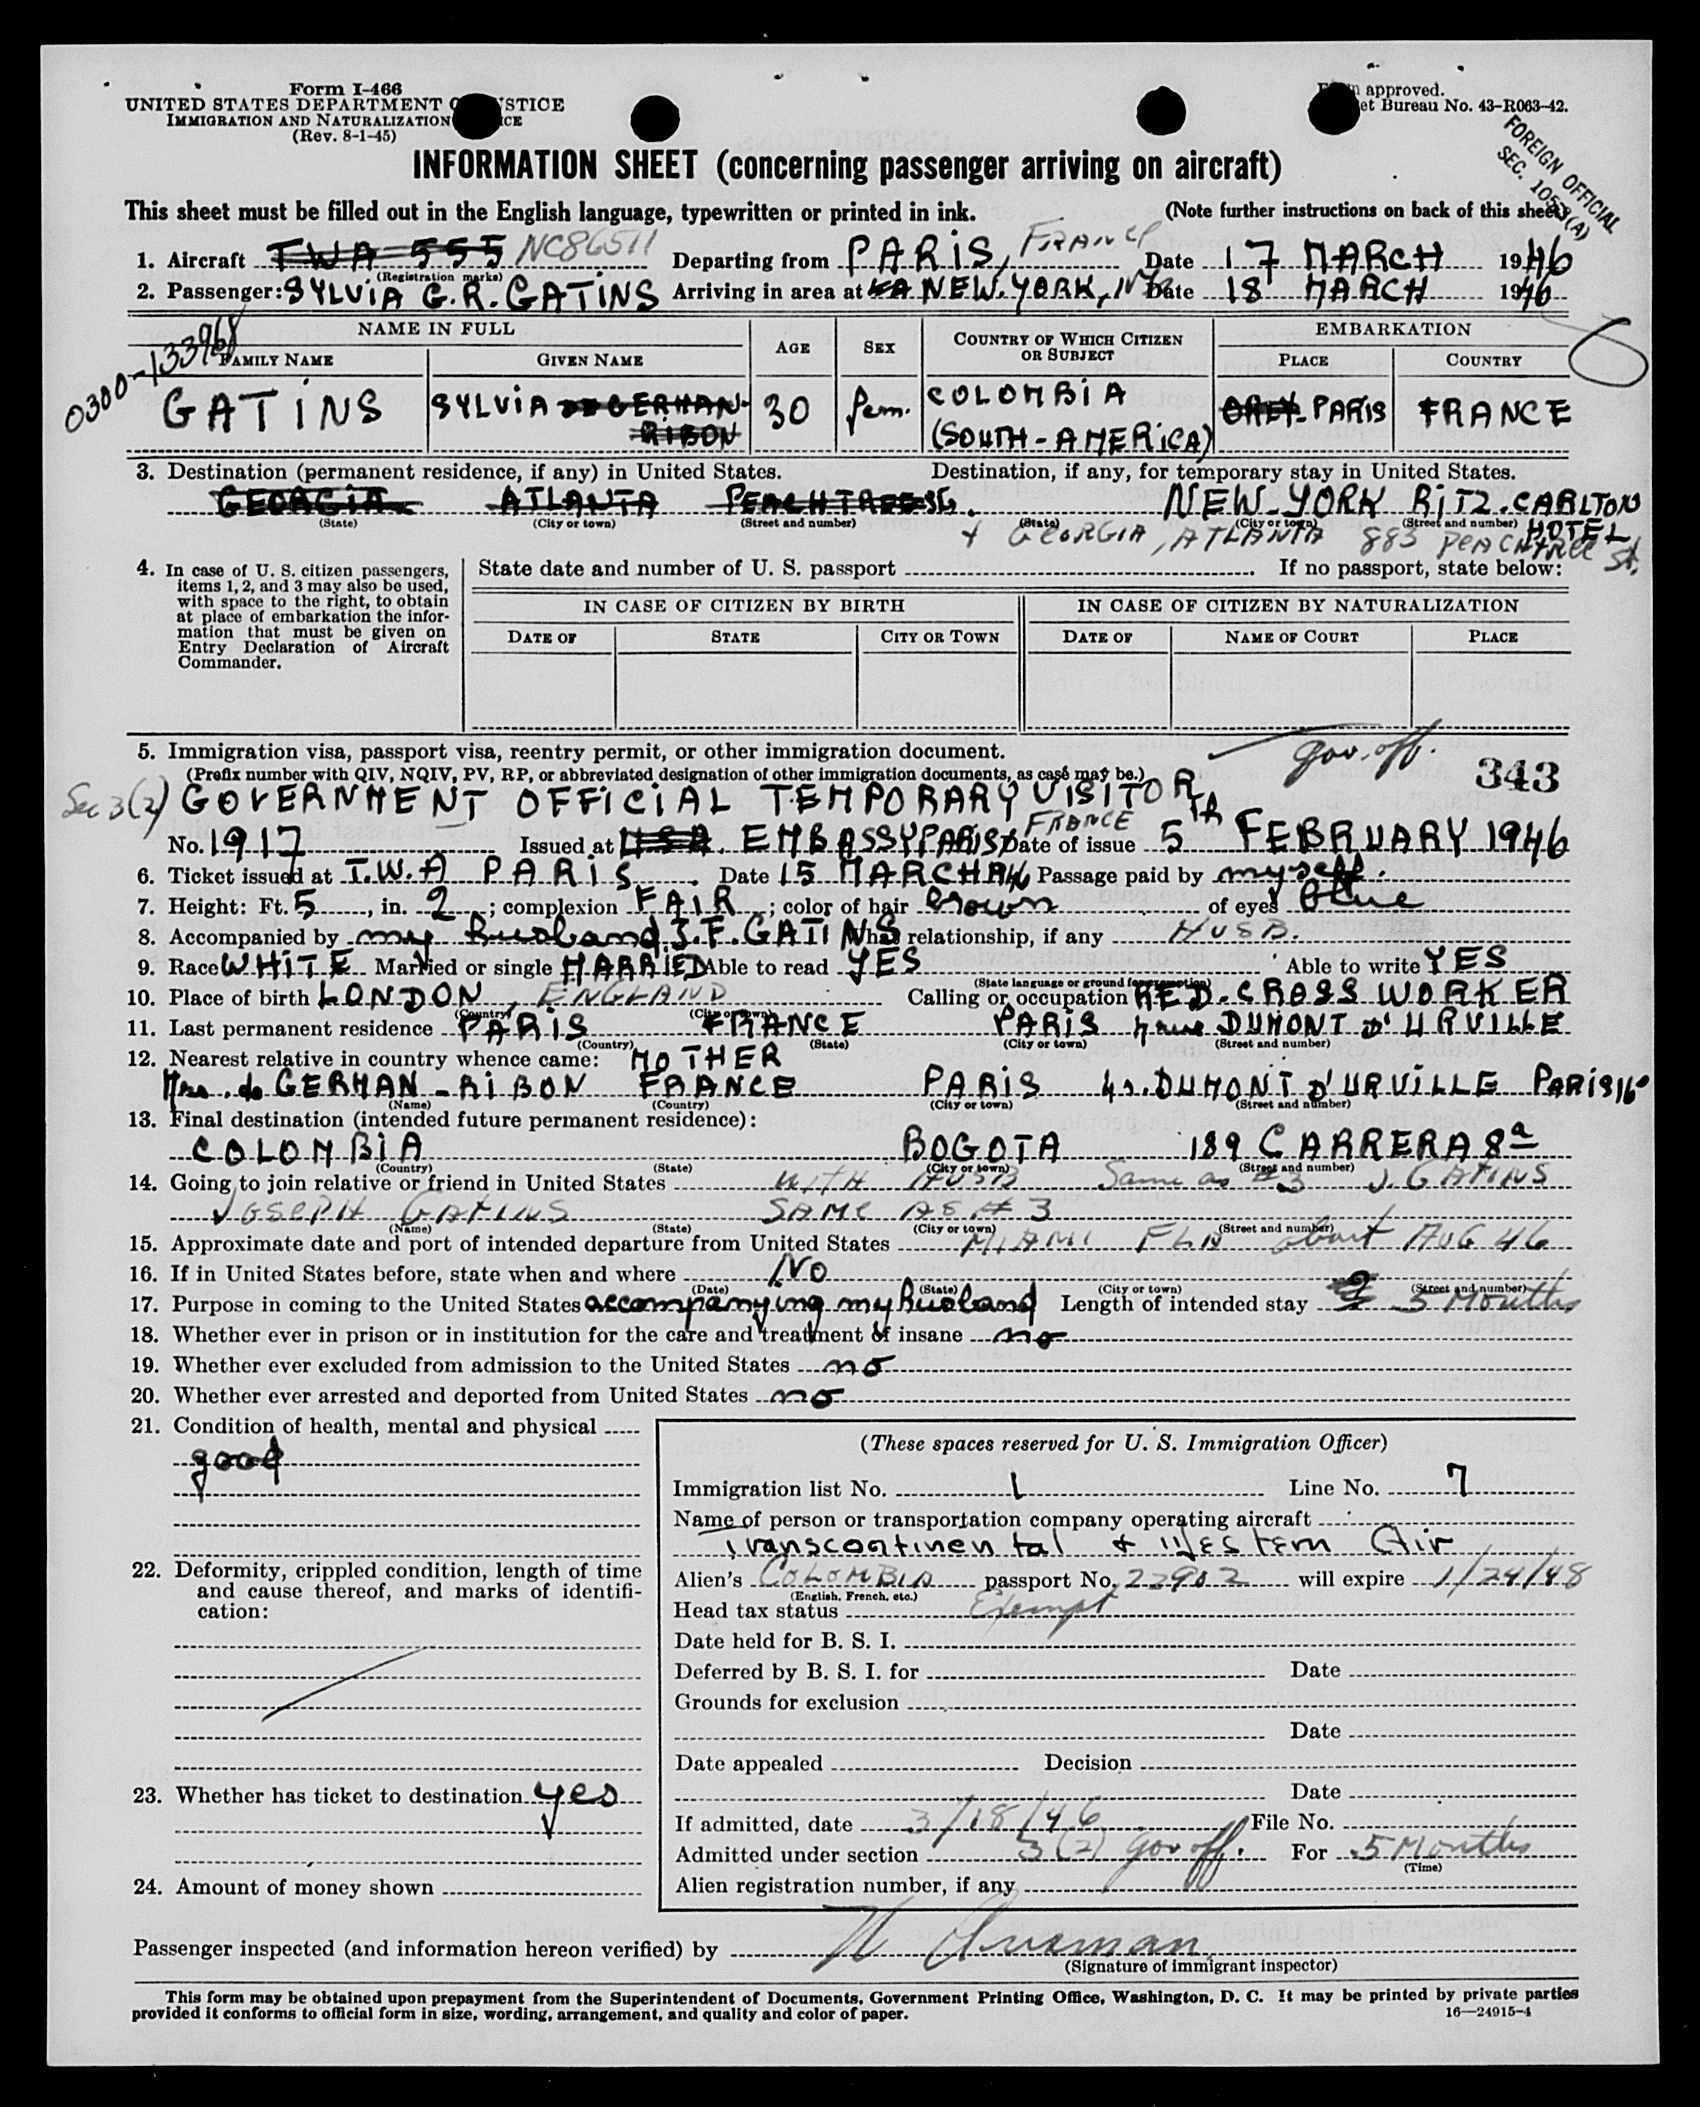 Form I-466
UNITED STATES DEPARTMENT O STICE
IMMIGRATION AND NATURALIZATION ICE
(Rev. 8-1-45)
approved.
et Bureau No. 43-R063-42.
FOREIGN OFFICIAL
SEC.
INFORMATION SHEET (concerning passenger arriving on aircraft)
This sheet must be filled out in the English language, typewritten or printed in ink. (Note further instructions on back of this sheet)
1. Aircraft TWA 555 NC86511 Departing from PARIS, FRANCE Date 17 MARCH 1946
(Registration marks)
2. Passenger: SYLVIA G.R. GATINS Arriving in area at NEW-YORK, NY Date 18 MARCH 1946
0300-133968
NAME IN FULL AGE SEX COUNTRY OF WHICH CITIZEN OR SUBJECT EMBARKATION
FAMILY NAME GIVEN NAME PLACE COUNTRY
GATINS SYLVIA DE GERMAN-RIBON 30 fem. COLOMBIA (SOUTH-AMERICA) ORLY PARIS FRANCE
3. Destination (permanent residence, if any) in United States. Destination, if any, for temporary stay in United States.
GEORGIA ATLANTA PEACHTREE SG. NEW-YORK RITZ-CARLTON HOTEL
(State) (City or town) (Street and number) (State) (City or town) (Street and number)
+ GEORGIA, ATLANTA 883 PEACHTREE St.
4. In case of U. S. citizen passengers, items 1, 2, and 3 may also be used, with space to the right, to obtain at place of embarkation the information that must be given on Entry Declaration of Aircraft Commander.
State date and number of U. S. passport If no passport, state below:
IN CASE OF CITIZEN BY BIRTH IN CASE OF CITIZEN BY NATURALIZATION
DATE OF STATE CITY OR TOWN DATE OF NAME OF COURT PLACE
5. Immigration visa, passport visa, reentry permit, or other immigration document. gov. off. 343
(Prefix number with QIV, NQIV, PV, RP, or abbreviated designation of other immigration documents, as case may be.)
Sec 3(2) GOVERNMENT OFFICIAL TEMPORARY VISITOR
No. 1917 Issued at USA. EMBASSY PARIS FRANCE Date of issue 5th FEBRUARY 1946
6. Ticket issued at T.W.A PARIS Date 15 MARCH Passage paid by myself.
7. Height: Ft. 5, in. 2; complexion FAIR; color of hair brown of eyes blue
8. Accompanied by my husband J.F. GATINS What relationship, if any HUSB.
9. Race WHITE Married or single MARRIED Able to read YES Able to write YES
(State language or ground for exemption)
10. Place of birth LONDON, ENGLAND Calling or occupation RED-CROSS WORKER
(Country) (City or town)
11. Last permanent residence PARIS FRANCE PARIS DUMONT D'URVILLE
(Country) (State) (City or town) (Street and number)
12. Nearest relative in country whence came: MOTHER
Mrs. de GERMAN-RIBON FRANCE PARIS 4s. DUMONT D'URVILLE PARIS 16°
(Name) (Country) (City or town) (Street and number)
13. Final destination (intended future permanent residence):
COLOMBIA BOGOTA 189 CARRERA 8a
(Country) (State) (City or town) (Street and number)
14. Going to join relative or friend in United States WITH HUSB Same as #3 J. GATINS
JOSEPH GATINS SAME AS #3
(Name) (State) (City or town) (Street and number)
15. Approximate date and port of intended departure from United States MIAMI FLA about AUG 46
16. If in United States before, state when and where NO
(Date) (State) (City or town) (Street and number)
17. Purpose in coming to the United States accompanying my husband Length of intended stay 5 Months
18. Whether ever in prison or in institution for the care and treatment of insane no
19. Whether ever excluded from admission to the United States no
20. Whether ever arrested and deported from United States no
21. Condition of health, mental and physical
good
22. Deformity, crippled condition, length of time and cause thereof, and marks of identification:
23. Whether has ticket to destination yes
24. Amount of money shown
(These spaces reserved for U. S. Immigration Officer)
Immigration list No. 1 Line No. 7
Name of person or transportation company operating aircraft
Transcontinental & Western Air
Alien's COLOMBIA passport No. 22902 will expire 1/24/48
(English, French, etc.)
Head tax status Exempt
Date held for B. S. I.
Deferred by B. S. I. for Date
Grounds for exclusion
Date
Date appealed Decision
Date
If admitted, date 3/18/46 File No.
Admitted under section 3(2) gov off. For 5 Months
(Time)
Alien registration number, if any
Passenger inspected (and information hereon verified) by
(Signature of immigrant inspector)
This form may be obtained upon prepayment from the Superintendent of Documents, Government Printing Office, Washington, D. C. It may be printed by private parties
provided it conforms to official form in size, wording, arrangement, and quality and color of paper. 16—24915-4